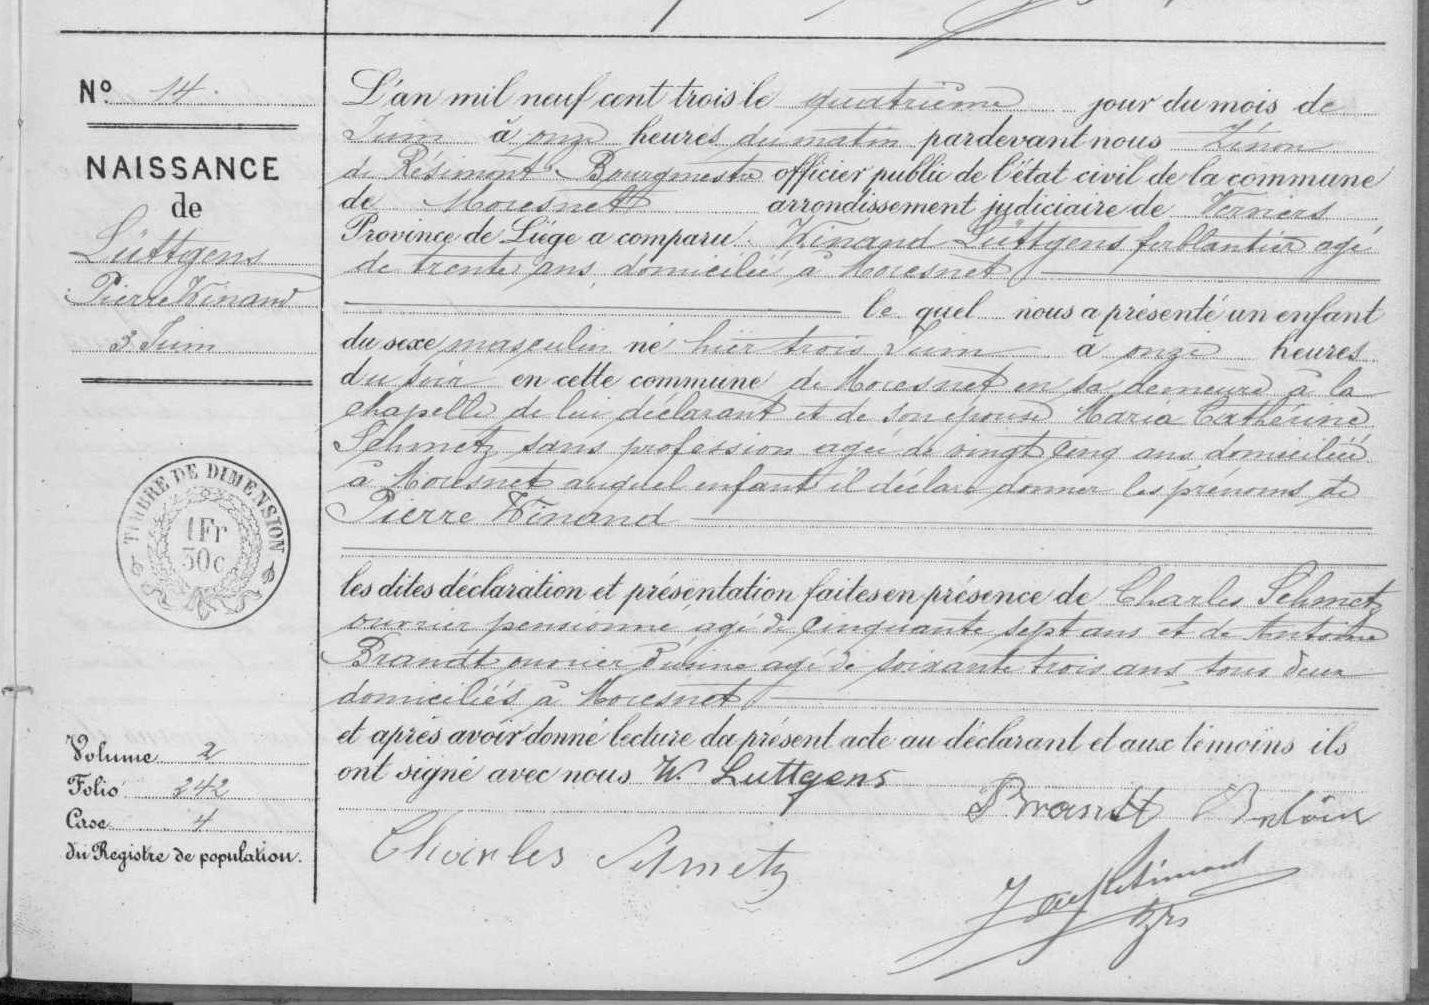 Nº 14.
NAISSANCE
de
Lüttgens
Pierre Winand
3 Juin
TIMBRE DE DIMENSION
1Fr
30c
Volume 2
Folio 242
Case 4
du Registre de population.
L'an mil neuf cent trois le quatrième jour du mois de
Juin à onze heures du matin pardevant nous Zénon
de Résimont Bourgmestre officier public de l'état civil de la commune
de Moresnet arrondissement judiciaire de Verviers
Province de Liége a comparu Winand Lüttgens ferblantier agé
de trente ans, domicilié à Moresnet
le quel nous a présenté un enfant
du sexe masculin né hier trois Juin à onze heures
du soir en cette commune de Moresnet en sa demeure à la
chapelle de lui déclarant et de son épouse Maria Catherine
Schmetz sans profession agée de vingt cinq ans domiciliée
à Moresnet auquel enfant il déclare donner les prénoms de
Pierre Winand
les dites déclaration et présentation faites en présence de Charles Schmetz
ouvrier pensionné agé de cinquante sept ans et de Antoine
Brandt ouvrier d'usine agé de soixante trois ans, tous deux
domiciliés à Moresnet
et après avoir donné lecture du présent acte au déclarant et aux témoins ils
ont signé avec nous W. Luttgens
Brandt Antoine
Charles Schmetz